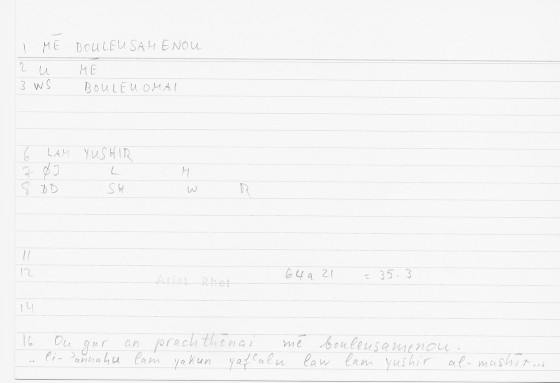 1 MĒ BOULEUSAMENOU
2 U MĒ
3 WS BOULEUOMAI
6 LAM YUSHIR
7 ØJ L M
8 ØD SH W R
11
12 Arist Rhet 64a 21 = 35.3
14
16 Ou gar an prachthēnai mē bouleusamenou.
.. li-ʾannahu lam yakun yafʿalu law lam yushir al-mushīr...